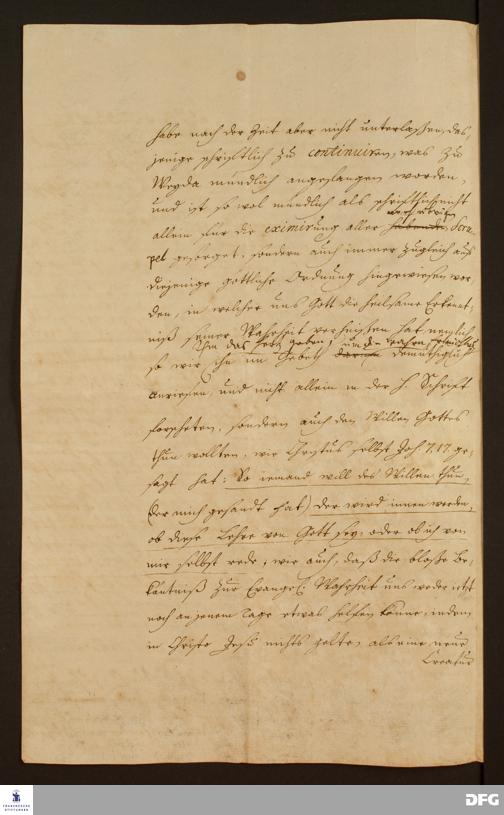 habe nach der Zeit aber nicht unterlaßen, das-
jenige schrifftlich zu continuiren, was zu
Weyda mündlich angefangen worden,
und ist so wol mündlich als schrifftlich nicht
allein für die eximirung aller Scru-
pel gesorget, sondern auch immer zugleich auf
diejenige göttliche Ordnung hingewiesen wor-
den, in welcher uns Gott die heilsame Erkent-
niß seiner Wahrheit verheißen hat, nemlich
Ihm das Herz geben, und die wahren
so wir ihn im Gebeth darum demüthiglich
anriefen, und nicht allein in der H. Schrifft
forscheten, sondern auch den Willen Gottes
thun wollten, wie Christus selbst Joh. 7, 17. ge-
sagt hat: So iemand will des Willen thun,
(der mich gesandt hat) der wird innen werden,
ob diese Lehre von Gott sey, oder ob ich von
mir selbst rede, wie auch, daß die bloße Be-
käntniß zur Evangel. Wahrheit uns weder itzt
noch an jenem Tage etwas helfen könne, indem
in Christo Jesu nichts gelte, als eine neue
Creatur
FRANCKESCHE
STIFTUNGEN
DFG